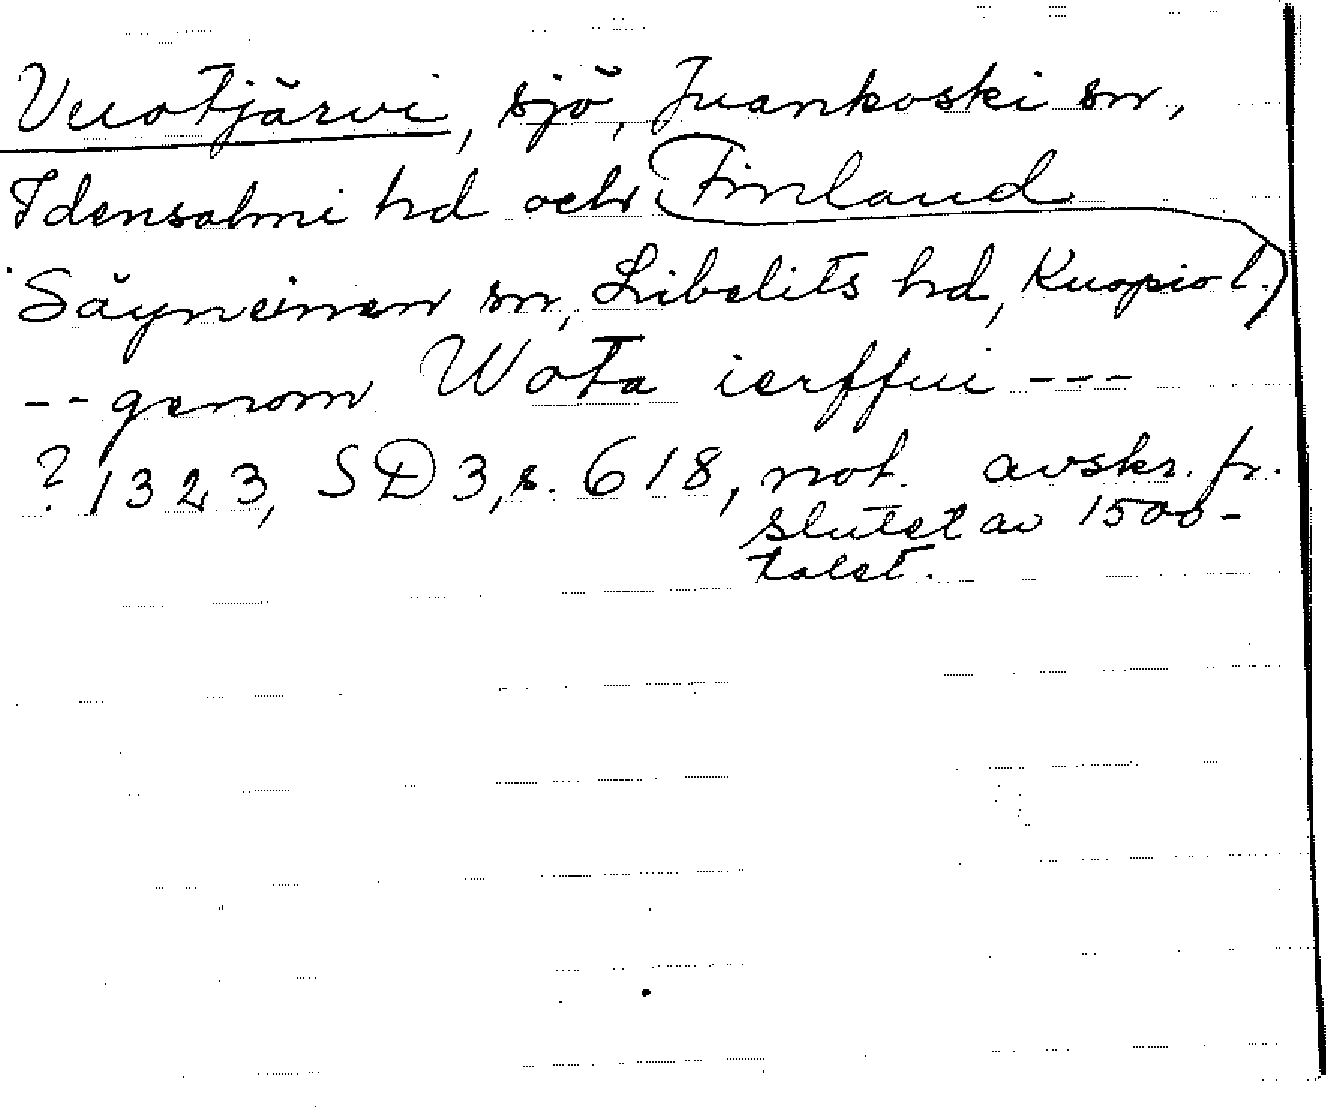 Vuotjärvi, sjö, Juankoski sn,
Idensalmi hd och Finland
Säyneinen sn, Libelits hd, Kuopio l.)
-- genom Wota ierffui ---
? 1323, SD 3, s. 618, not. avskr. fr.
slutet av 1500-
talet.